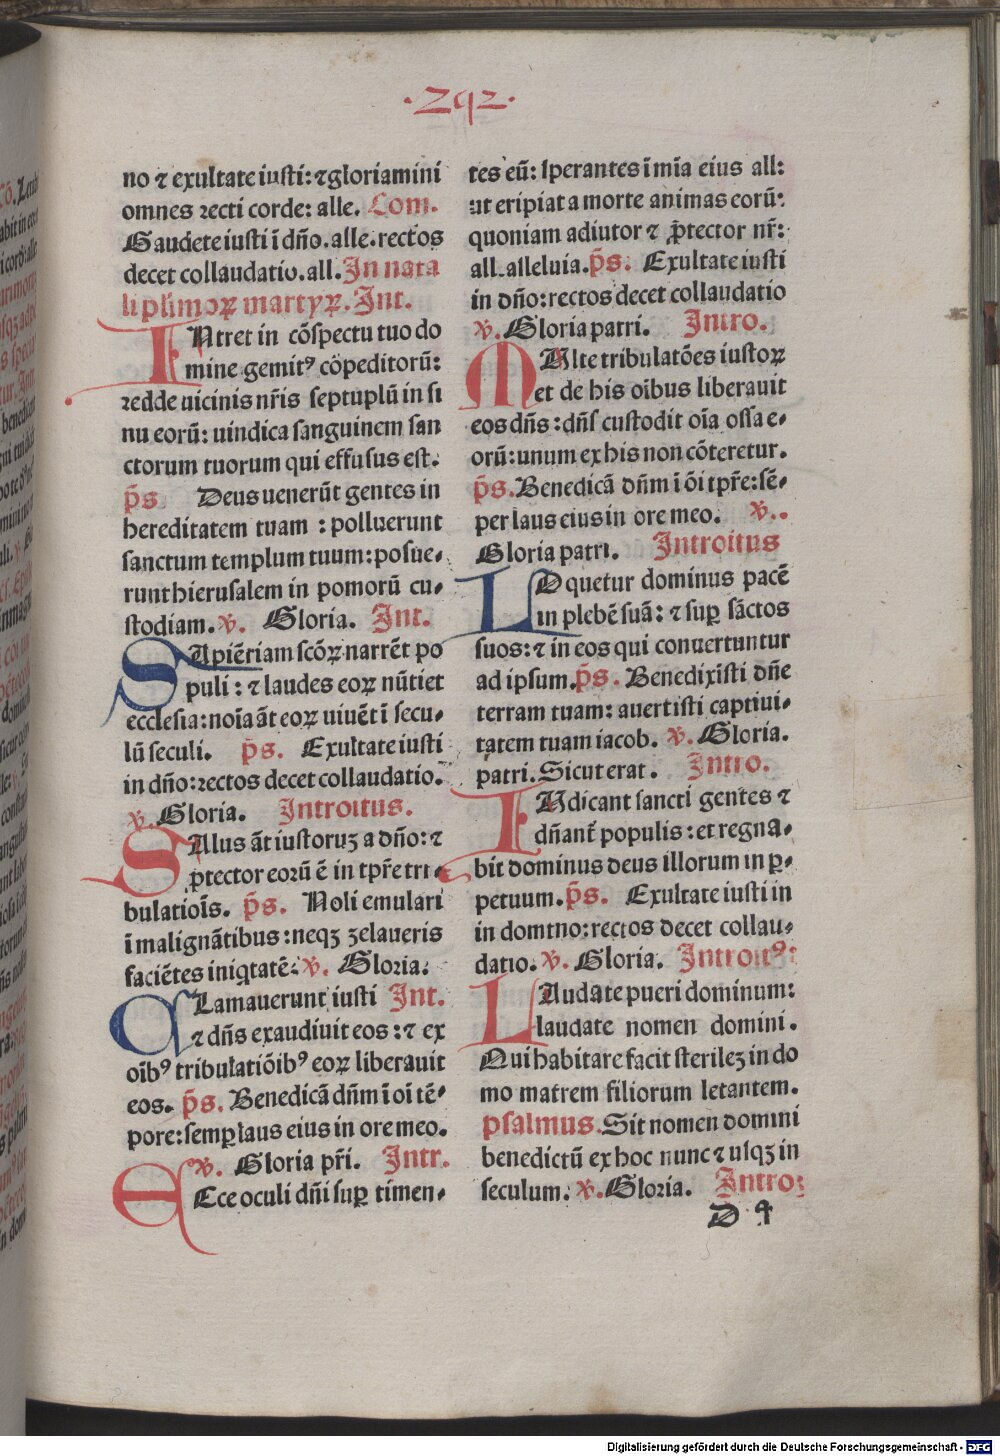 ·292·
no ⁊ exultate iusti: ⁊ gloriamini
omnes recti corde: alle. Com.
Gaudete iusti ī dño. alle. rectos
decet collaudatio. all. In nata
li plīmoꝝ martyꝝ. Int.
INtret in cōspectu tuo do
mine gemitꝰ cōpeditorū:
redde uicinis nr̄is septuplū in si
nu eorū: uindica sanguinem san
ctorum tuorum qui effusus est.
p̄s Deus uenerūt gentes in
hereditatem tuam : polluerunt
sanctum templum tuum: posue-
runt hierusalem in pomorū cu-
stodiam. ꝟ. Gloria. Int.
SApiētiam scōꝝ narrēt po
puli : ⁊ laudes eoꝝ nūtiet
ecclesia: noīa āt eoꝝ uiuēt ī secu-
lū seculi. p̄s. Exultate iusti
in dño: rectos decet collaudatio.
ꝟ. Gloria. Introitus.
SAlus āt iustoruꝫ a dño: ⁊
ꝓtector eorū ē in tpr̄e tri-
bulatiōis. p̄s. Noli emulari
ī malignātibus: neqꝫ zelaueris
faciētes iniqtatē: ꝟ. Gloria.
CLamauerunt iusti Int.
⁊ dñs exaudiuit eos : ⁊ ex
oībꝰ tribulatiōibꝰ eoꝝ liberauit
eos. p̄s. Benedicā dñm ī oī tē-
pore: semꝑ laus eius in ore meo.
ꝟ. Gloria pr̄i. Intr.
ECce oculi dñi suꝑ timen-
tes eū: sperantes ī mīa eius all:
ut eripiat a morte animas eorū:
quoniam adiutor ⁊ ꝓtector nr̄:
all. alleluia. p̄s. Exultate iusti
in dño: rectos decet collaudatio
ꝟ. Gloria patri. Intro.
MUlte tribulatōes iustoꝝ
et de his oībus liberauit
eos dñs : dñs custodit oīa ossa e-
orū: unum ex his non cōteretur.
p̄s. Benedicā dñm ī oī tpr̄e: sē-
per laus eius in ore meo. ꝟ..
Gloria patri. Introitus
LOquetur dominus pacē
in plebē suā: ⁊ suꝑ sāctos
suos: ⁊ in eos qui conuertuntur
ad ipsum. p̄s. Benedixisti dñe
terram tuam: auertisti captiui-
tatem tuam iacob. ꝟ. Gloria.
patri. Sicut erat. Intro.
IUdicant sancti gentes ⁊
dñant̄ populis : et regna-
bit dominus deus illorum in ꝑ-
petuum. p̄s. Exultate iusti in
in domino: rectos decet collau-
datio. ꝟ. Gloria. Introitꝰ:
LAudate pueri dominum:
laudate nomen domini.
Qui habitare facit sterileꝫ in do
mo matrem filiorum letantem.
psalmus. Sit nomen domini
benedictū ex hoc nunc ⁊ usqꝫ in
seculum. ꝟ. Gloria. Intro:
Digitalisierung gefördert durch die Deutsche Forschungsgemeinschaft - DFG